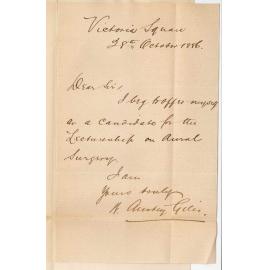 Victoria Square
28th October 1886.
Dear Sir,
I beg to offer myself
as a candidate for the
Lectureship on Aural
Surgery.
I am
Yours truly
W. Anstey Giles.